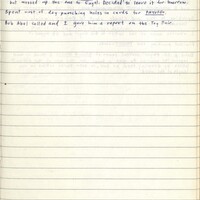 but messed up too due to Eagel. Decided to leave it for tomorrow.
Spent rest of day punching holes in cards for
Bob Neal called and I gave him a report on the Toy Fair.